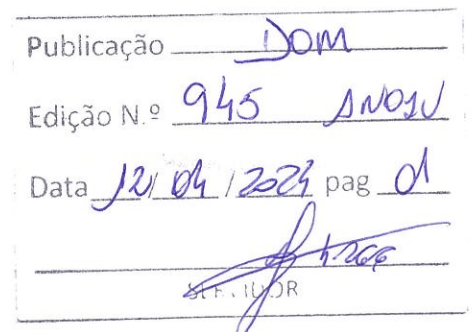 Publicação DOM
Edição N.º 945 ANO IV
Data 12/04/2024 pag 01
SERVIDOR